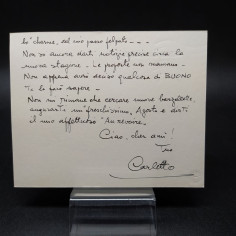 lo' charme, sul suo passo felpato - - -
Non so ancora darti notizie precise circa la
nuova stagione - Le proposte non mancano -
Non appena avrò deciso qualcosa di BUONO
Te lo farò sapere -
Non mi rimane che cercare nuove barzellette,
augurarti un freschissimo Agosto e darti
il mio affettuoso "Au revoire".
Ciao, cher ami!
Tuo
Carletto